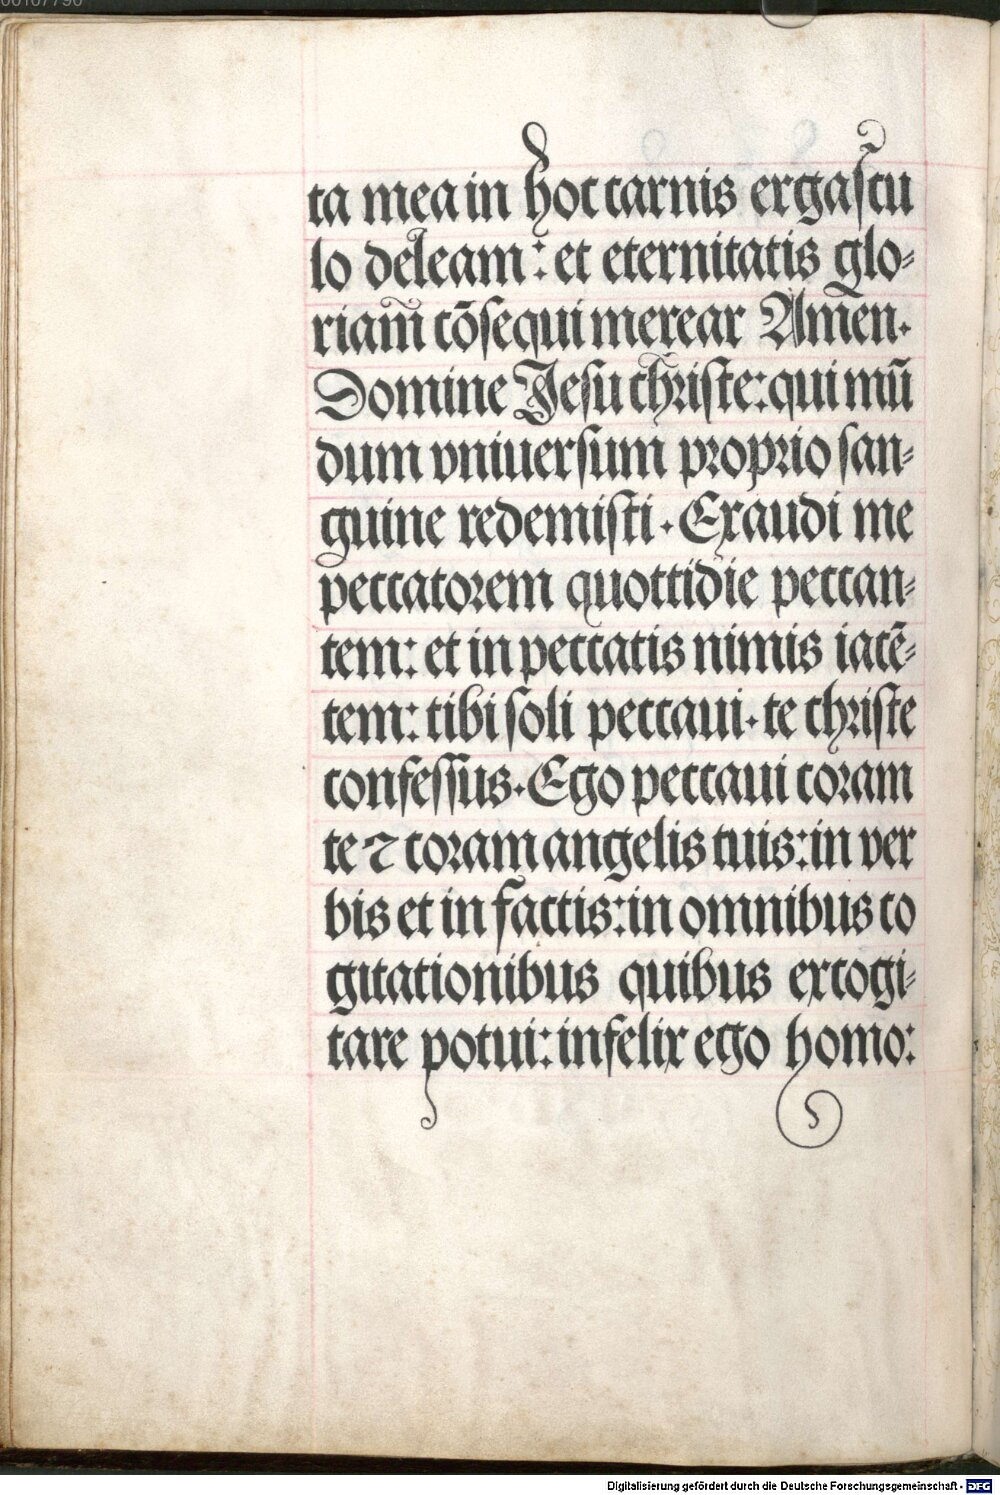 ta mea in hoc carnis ergastu
lo deleam: et eternitatis glo-
riam̄ cōsequi merear Amen.
Domine Jesu christe: qui mū
dum vniuersum proprio san-
guine redemisti. Exaudi me
peccatorem quottidie peccan-
tem: et in peccatis nimis iacē-
tem: tibi soli peccaui. te christe
confessus. Ego peccaui coram
te ⁊ coram angelis tuis: in ver
bis et in factis: in omnibus co
gitationibus quibus excogi-
tare potui: infelix ego homo:
Digitalisierung gefördert durch die Deutsche Forschungsgemeinschaft - DFG